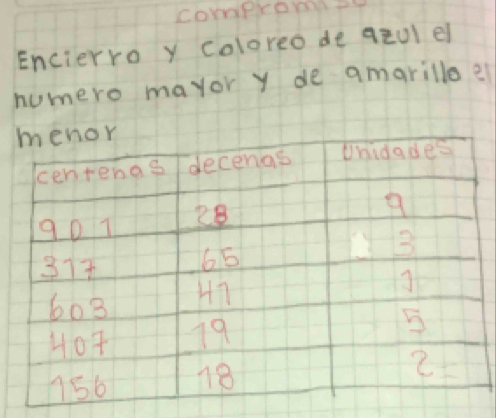 compromiso
Encierro y coloreo de azul el
numero mayor y de amarillo el
menor
centenas decenas Unidades
901 28 9
317 65 3
603 41 1
407 19 5
156 18 2